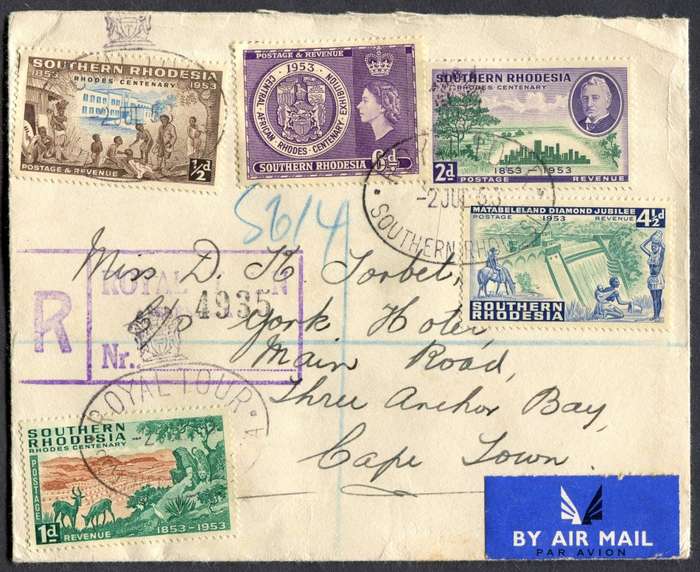 SOUTHERN RHODESIA
RHODES CENTENARY
1853 1953
POSTAGE & REVENUE
½d
POSTAGE & REVENUE
1953
CENTRAL AFRICAN RHODES CENTENARY EXHIBITION
SOUTHERN RHODESIA 6d
SOUTHERN RHODESIA
RHODES CENTENARY
1853-1953
2d POSTAGE & REVENUE
-2 JUL 53
SOUTHERN
MATABELELAND DIAMOND JUBILEE
POSTAGE 1953 REVENUE 4½d
SOUTHERN
RHODESIA
5614
R ROYAL
4935
Nr.
Miss D. K. Torbet,
York Hotel,
Main Road,
Three Anchor Bay,
Cape Town.
ROYAL TOUR
SOUTHERN
RHODESIA
RHODES CENTENARY
POSTAGE
1d REVENUE 1853-1953
BY AIR MAIL
PAR AVION